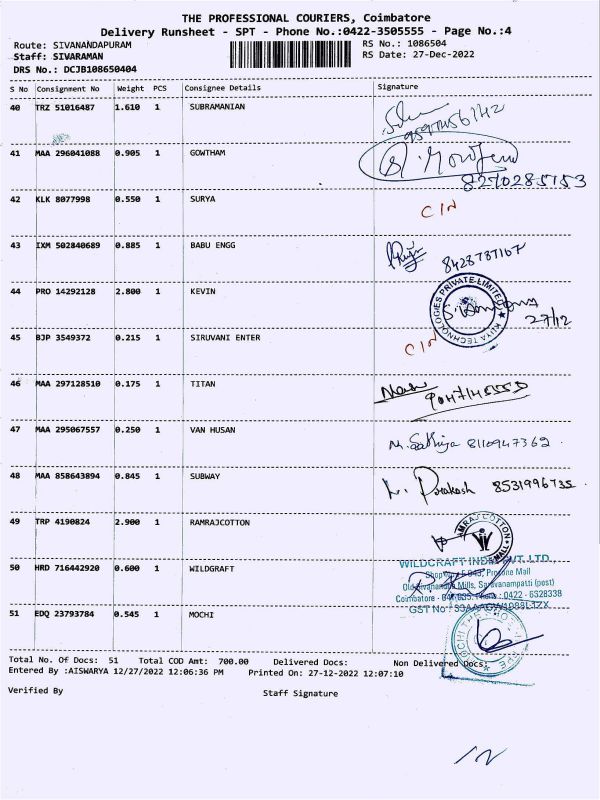 THE PROFESSIONAL COURIERS, Coimbatore
Delivery Runsheet - SPT - Phone No.:0422-3505555 - Page No.:4
Route: SIVANANDAPURAM RS No.: 1086504
Staff: SIVARAMAN RS Date: 27-Dec-2022
DRS No.: DCJB108650404
S No Consignment No Weight PCS Consignee Details Signature
40 TRZ 51016487 1.610 1 SUBRAMANIAN
41 MAA 296041088 0.905 1 GOWTHAM
8270285153
42 KLK 8077998 0.550 1 SURYA
CIN
43 IXM 502840689 0.885 1 BABU ENGG
8428787167
44 PRO 14292128 2.800 1 KEVIN
TECHNOLOGIES PRIVATE LIMITED
27/12
45 BJP 3549372 0.215 1 SIRUVANI ENTER
CIN
46 MAA 297128510 0.175 1 TITAN
47 MAA 295067557 0.250 1 VAN HUSAN
M. Sathiya 8110947362
48 MAA 858643894 0.845 1 SUBWAY
Prakash 8531996735
49 TRP 4190824 2.900 1 RAMRAJCOTTON
50 HRD 716442920 0.600 1 WILDGRAFT
WILDCRAFT INDIA PVT. LTD.
Mills, Saravanampatti (post)
0422 - 6328338
GST No
51 EDQ 23793784 0.545 1 MOCHI
Total No. Of Docs: 51 Total COD Amt: 700.00 Delivered Docs: Non Delivered Docs:
Entered By :AISWARYA 12/27/2022 12:06:36 PM Printed On: 27-12-2022 12:07:10
Verified By Staff Signature